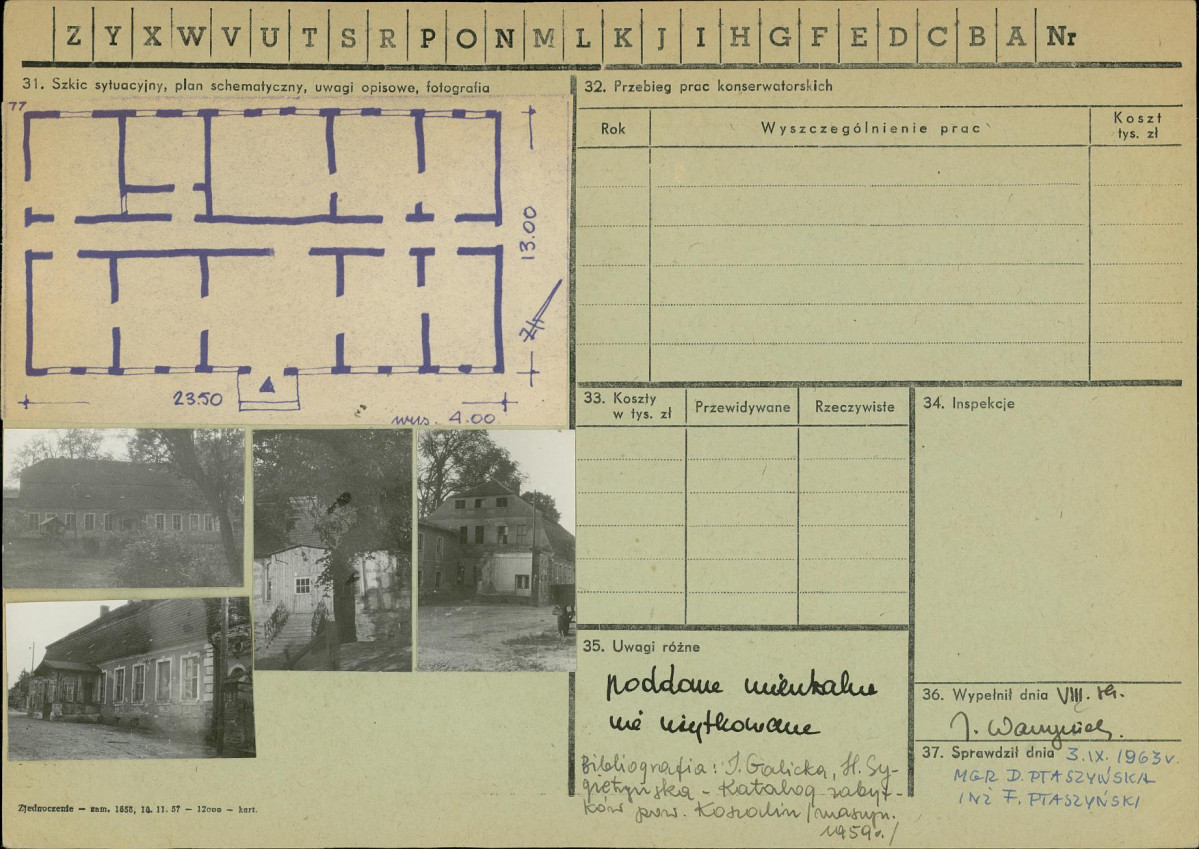 Z Y X W V U T S R P O N M L K J I H G F E D C B A Nr
31. Szkic sytuacyjny, plan schematyczny, uwagi opisowe, fotografia
77
13.00
23.50
wys. 4.00
Zjednoczenie – zam. 1658, 10. 11. 57 – 12000 – kart.
32. Przebieg prac konserwatorskich
Rok
Wyszczególnienie prac
Koszt
tys. zł
33. Koszty
w tys. zł
Przewidywane
Rzeczywiste
34. Inspekcje
35. Uwagi różne
poddasze mieszkalne
nie użytkowane
Bibliografia: I. Galicka, H. Sy-
gietyńska – Katalog zabyt-
ków pow. Koszalin /maszyn.
1959r./
36. Wypełnił dnia VIII.
37. Sprawdził dnia 3.IX.1963 r.
MGR D. PTASZYŃSKA
INŻ F. PTASZYŃSKI